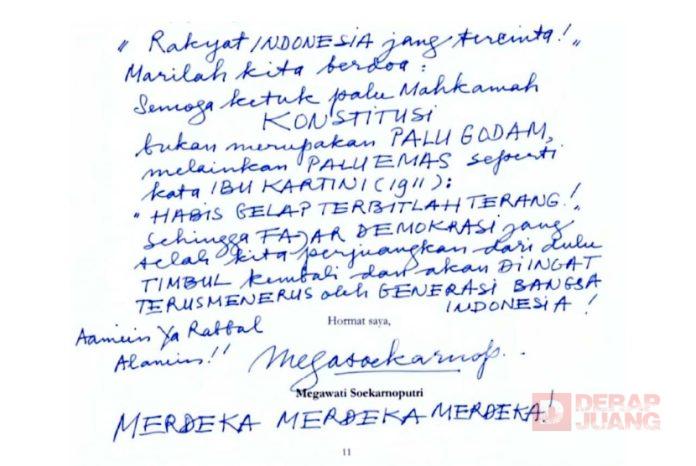 " Rakyat INDONESIA jang tercinta! "
Marilah kita berdoa :
Semoga ketuk palu Mahkamah
KONSTITUSI
bukan merupakan PALU GODAM,
melainkan PALU EMAS seperti
kata IBU KARTINI (1911) :
" HABIS GELAP TERBITLAH TERANG! "
Sehingga FAJAR DEMOKRASI jang
telah kita perjuangkan dari dulu
TIMBUL kembali dan akan DIINGAT
TERUSMENERUS oleh GENERASI BANGSA
INDONESIA !
Hormat saya,
Aamiin Ya Rabbal
Alamin!!
Megasoekarnop..
Megawati Soekarnoputri
MERDEKA MERDEKA MERDEKA!
DERAP
JUANG
11